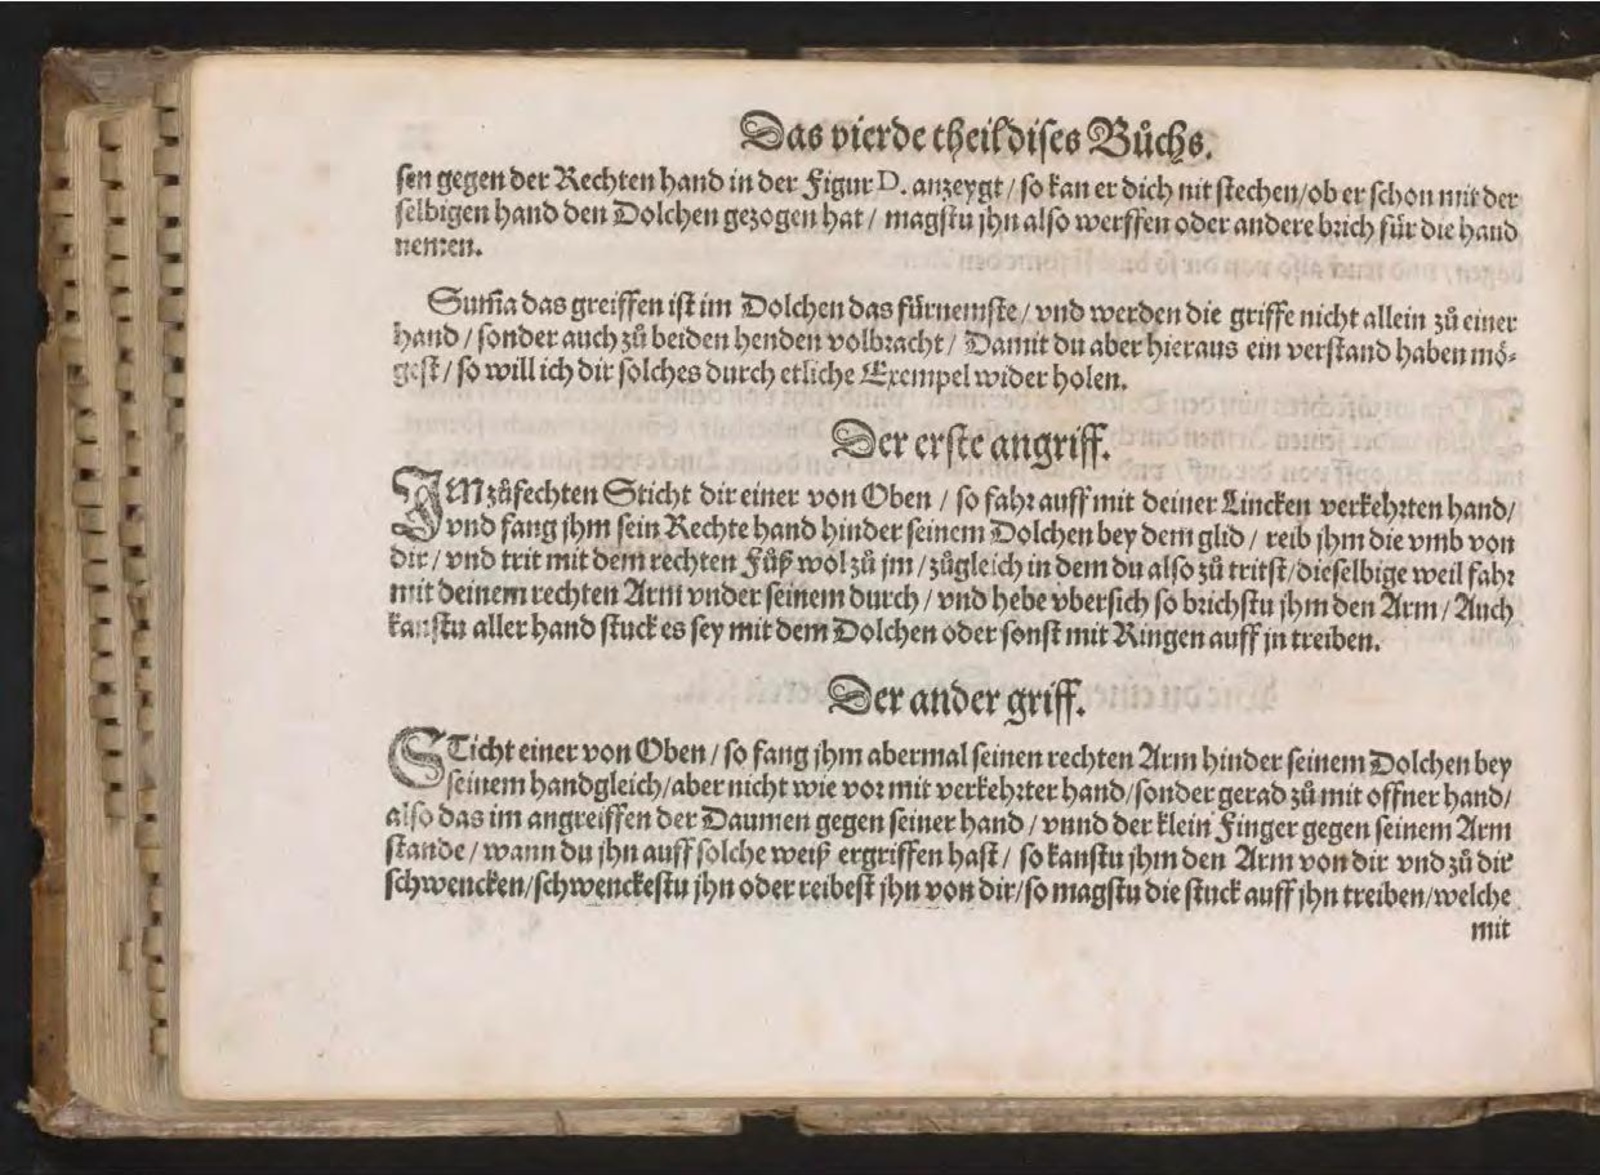 Das vierde theil dises Bůchs.
sen gegen der Rechten hand in der Figur D. anzeygt / so kan er dich nit stechen / ob er schon mit der
selbigen hand den Dolchen gezogen hat / magstu jhn also werffen oder andere brich für die hand
nemen.
Sum̃a das greiffen ist im Dolchen das fürnemste / vnd werden die griffe nicht allein zů einer
hand / sonder auch zů beiden henden volbracht / Damit du aber hieraus ein verstand haben mö-
gest / so will ich dir solches durch etliche Exempel wider holen.
Der erste angriff.
IM zůfechten Sticht dir einer von Oben / so fahr auff mit deiner Lincken verkehrten hand /
vnd fang jhm sein Rechte hand hinder seinem Dolchen bey dem glid / reib jhm die vmb von
dir / vnd trit mit dem rechten Fůß wol zů jm / zůgleich in dem du also zů tritst / dieselbige weil fahr
mit deinem rechten Arm vnder seinem durch / vnd hebe vbersich so brichstu jhm den Arm / Auch
kanstu aller hand stuck es sey mit dem Dolchen oder sonst mit Ringen auff jn treiben.
Der ander griff.
STicht einer von Oben / so fang jhm abermal seinen rechten Arm hinder seinem Dolchen bey
seinem handgleich / aber nicht wie vor mit verkehrter hand / sonder gerad zů mit offner hand /
also das im angreiffen der Daumen gegen seiner hand / vnnd der klein Finger gegen seinem Arm
stande / wann du jhn auff solche weiß ergriffen hast / so kanstu jhm den Arm von dir vnd zů dir
schwencken / schwenckestu jhn oder reibest jhn von dir / so magstu die stuck auff jhn treiben / welche
mit